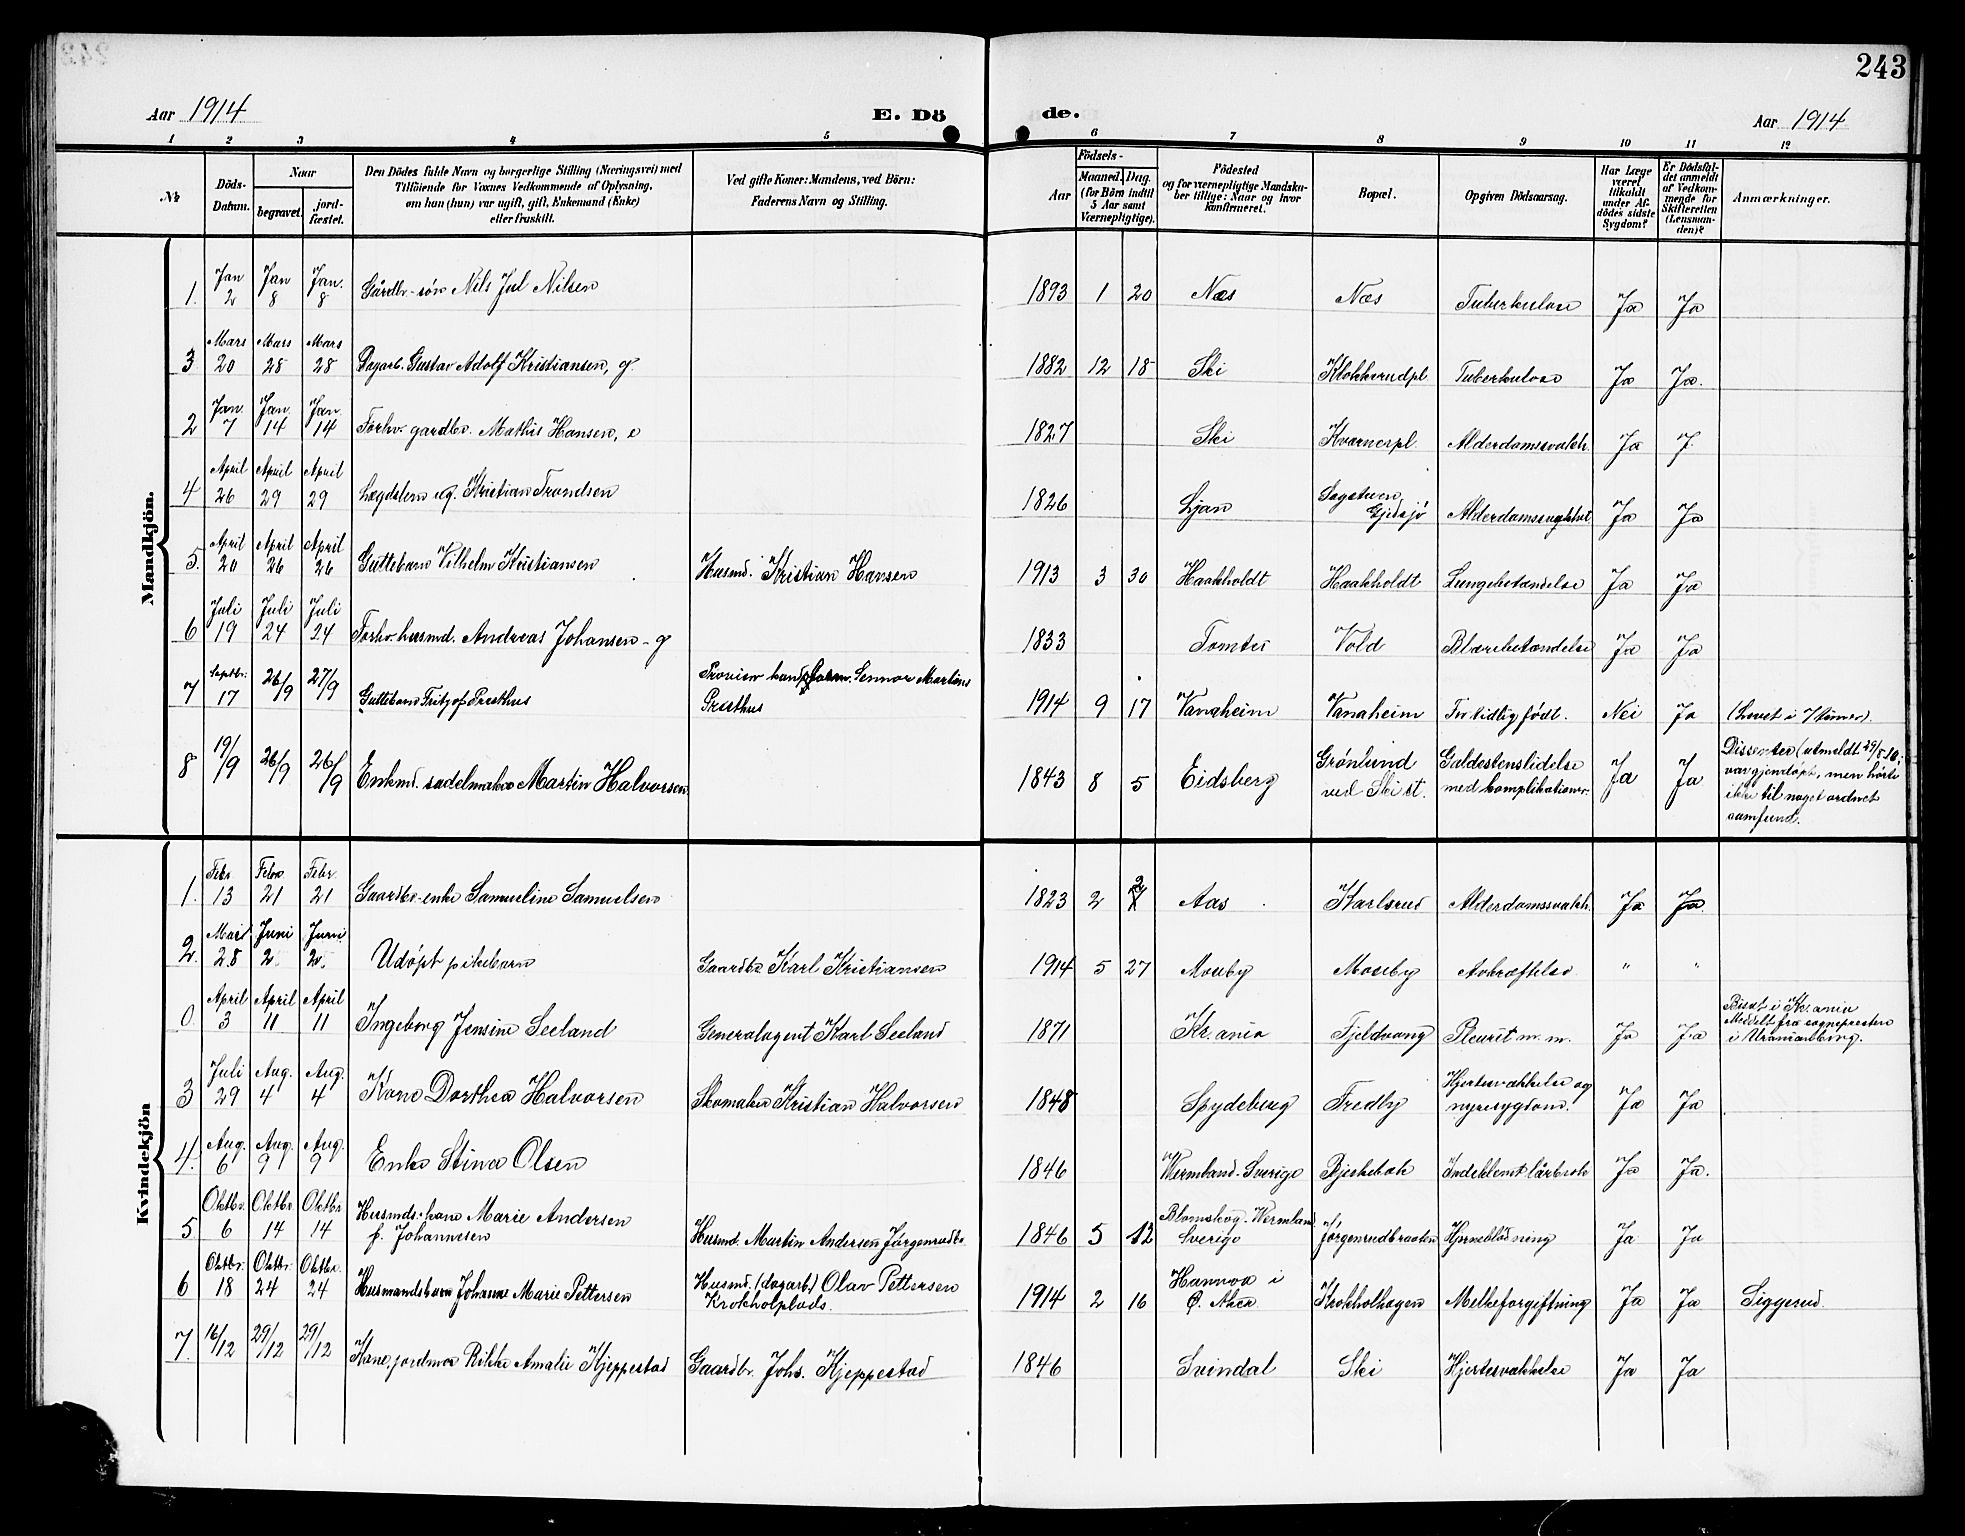 243
Aar 1914 E. Dö de. Aar 1914
1 2 3 4 5 6 7 8 9 10 11 12
Nr
Döds-Datum.
Naar
begravet.
jord-fæstet.
Den Dödes fulde Navn og borgerlige Stilling (Næringsvei) med
Tilföiende for Voxnes Vedkommende af Oplysning,
om han (hun) var ugift, gift, Enkemand (Enke)
eller fraskilt.
Ved gifte Koner: Mandens, ved Börn:
Faderens Navn og Stilling.
Födsels-
Aar
Maaned. Dag.
(for Börn indtil
5 Aar samt
Værnepligtige).
Födested
og for værnepligtige Mandska-
ber tillige: Naar og hvor
konfirmeret.
Bopæl.
Opgiven Dödsaarsag.
Har Læge
været
tilkaldt
under Af-
dödes sidste
Sygdom?
Er Dödsfal-
det anmeldt
af Vedkom-
mende for
Skifteretten
(Lensman-
den)?
Anmærkninger.
Mandkjön.
1. Jan 2 Jan 8 Jan. 8 Gårdbr-søn Nils Jul Nilsen 1893 1 20 Næs Næs Tuberkulose Ja Ja
3. Mars 20 Mars 28 Mars 28 Dagarb. Gustav Adolf Kristiansen, g. 1882 12 18 Ski Klokkerudpl. Tuberkulose Ja Ja.
2 Jan. 7 Jan. 14 Jan. 14 Forhv. gardbr. Mathis Hansen, e 1827 Ski Kvarnerpl. Alderdomssvakh. Ja J.
4 April 26 April 29 April 29 Lægdslem ug. Kristian Trondsen 1826 Ljan Sagstuen Gjersjø Ja Ja
5. April 20 April 26 April 26 Guttebarn Vilhelm Kristiansen Husmd. Kristian Hansen 1913 3 30 Haakholdt Haakholdt Lungebetændelse Ja Ja
6 Juli 19 Juli 24 Juli 24 Forhv. husmd. Andreas Johansen - g 1833 Tomter Vold Blærebetændelse Ja Ja
7 Septbr. 17 26/9 27/9 Guttebarn Fritjof Presthus Sennor Martinus Presthus 1914 9 17 Vanaheim Vanaheim For tidlig født. Nei Ja (Levet i 7 timer).
8 19/9 26/9 26/9 Enkmd. sadelmaker Martin Halvorsen 1843 8 5 Eidsberg Grønlund ved Ski st. Galdestenslidelse med komplikationer. Ja Ja Dissenter (utmeldt 29/5 10; var gjendøpt, men hørte ikke til noget ordnet samfund.
Kvindekjön
1. Febr 13 Febr 21 Febr. 21 Gaardbr-enke Samueline Samuelsen 1823 2 Aas Karlsrud Alderdomssvakh. Ja Ja
2. Mai 28 Juni 2. Juni 2. Udøpt pikebarn Gaardbr Karl Kristiansen 1914 5 27 Mosby Mosby Avkræftelse " "
0 April 3 April 11 April 11 Ingeborg Jensine Seeland Generalagent Karl Seeland 1871 Kr.ania Fjeldvang Pleurit m. m. Ja Ja Bisat i Kr.ania Meddelt fra sognepresten i Uranienborg.
3 Juli 29 Aug. 4 Aug. 4 Kone Dorthea Halvorsen Skomaker Kristian Halvorsen 1848 Spydeberg Fredly Hjertesvækkelse og nyresygdom. Ja Ja
4. Aug. 6 Aug. 9 Aug. 9 Enke Stina Olsen 1846 Wermland. Sverige Bjerkebæk Indeklemt lårbrok Ja Ja.
5 Oktbr. 6 Oktbr. 14 Oktbr 14 Husmds. kone Marie Andersen f. Johannesen Husmd. Martin Andersen Jørgenrudbr. 1846 5 12 Blomskog. Wermland Sverige Jørgenrudbraaten Hjerneblødning Ja Ja
6 Oktbr. 18 Oktbr. 24 Oktbr. 24 Husmandsbarn Johanne Marie Pettersen Husmd. (dagarb.) Olav Pettersen Krokholplads. 1914 2 16 i Ø. Aker Krokholhagen Melkeforgiftning Ja Ja Siggerud.
7. 16/12 29/12 29/12 Kone, jordmor Rikke Amalie Kjeppestad Gaardbr. Johs. Kjeppestad 1846 Svindal Ski Hjertesvækkelse Ja Ja